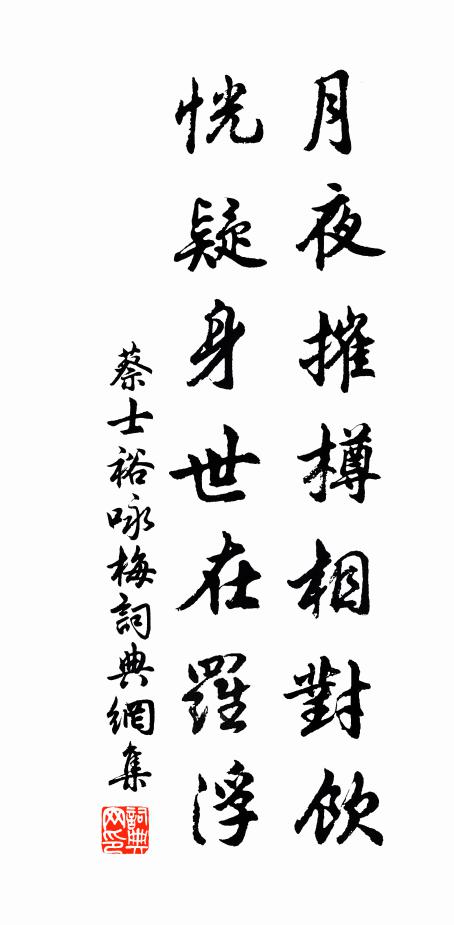 月夜摧樽相對飲
恍疑身世在羅浮
蔡士裕咏梅詞典網集
詞典网印